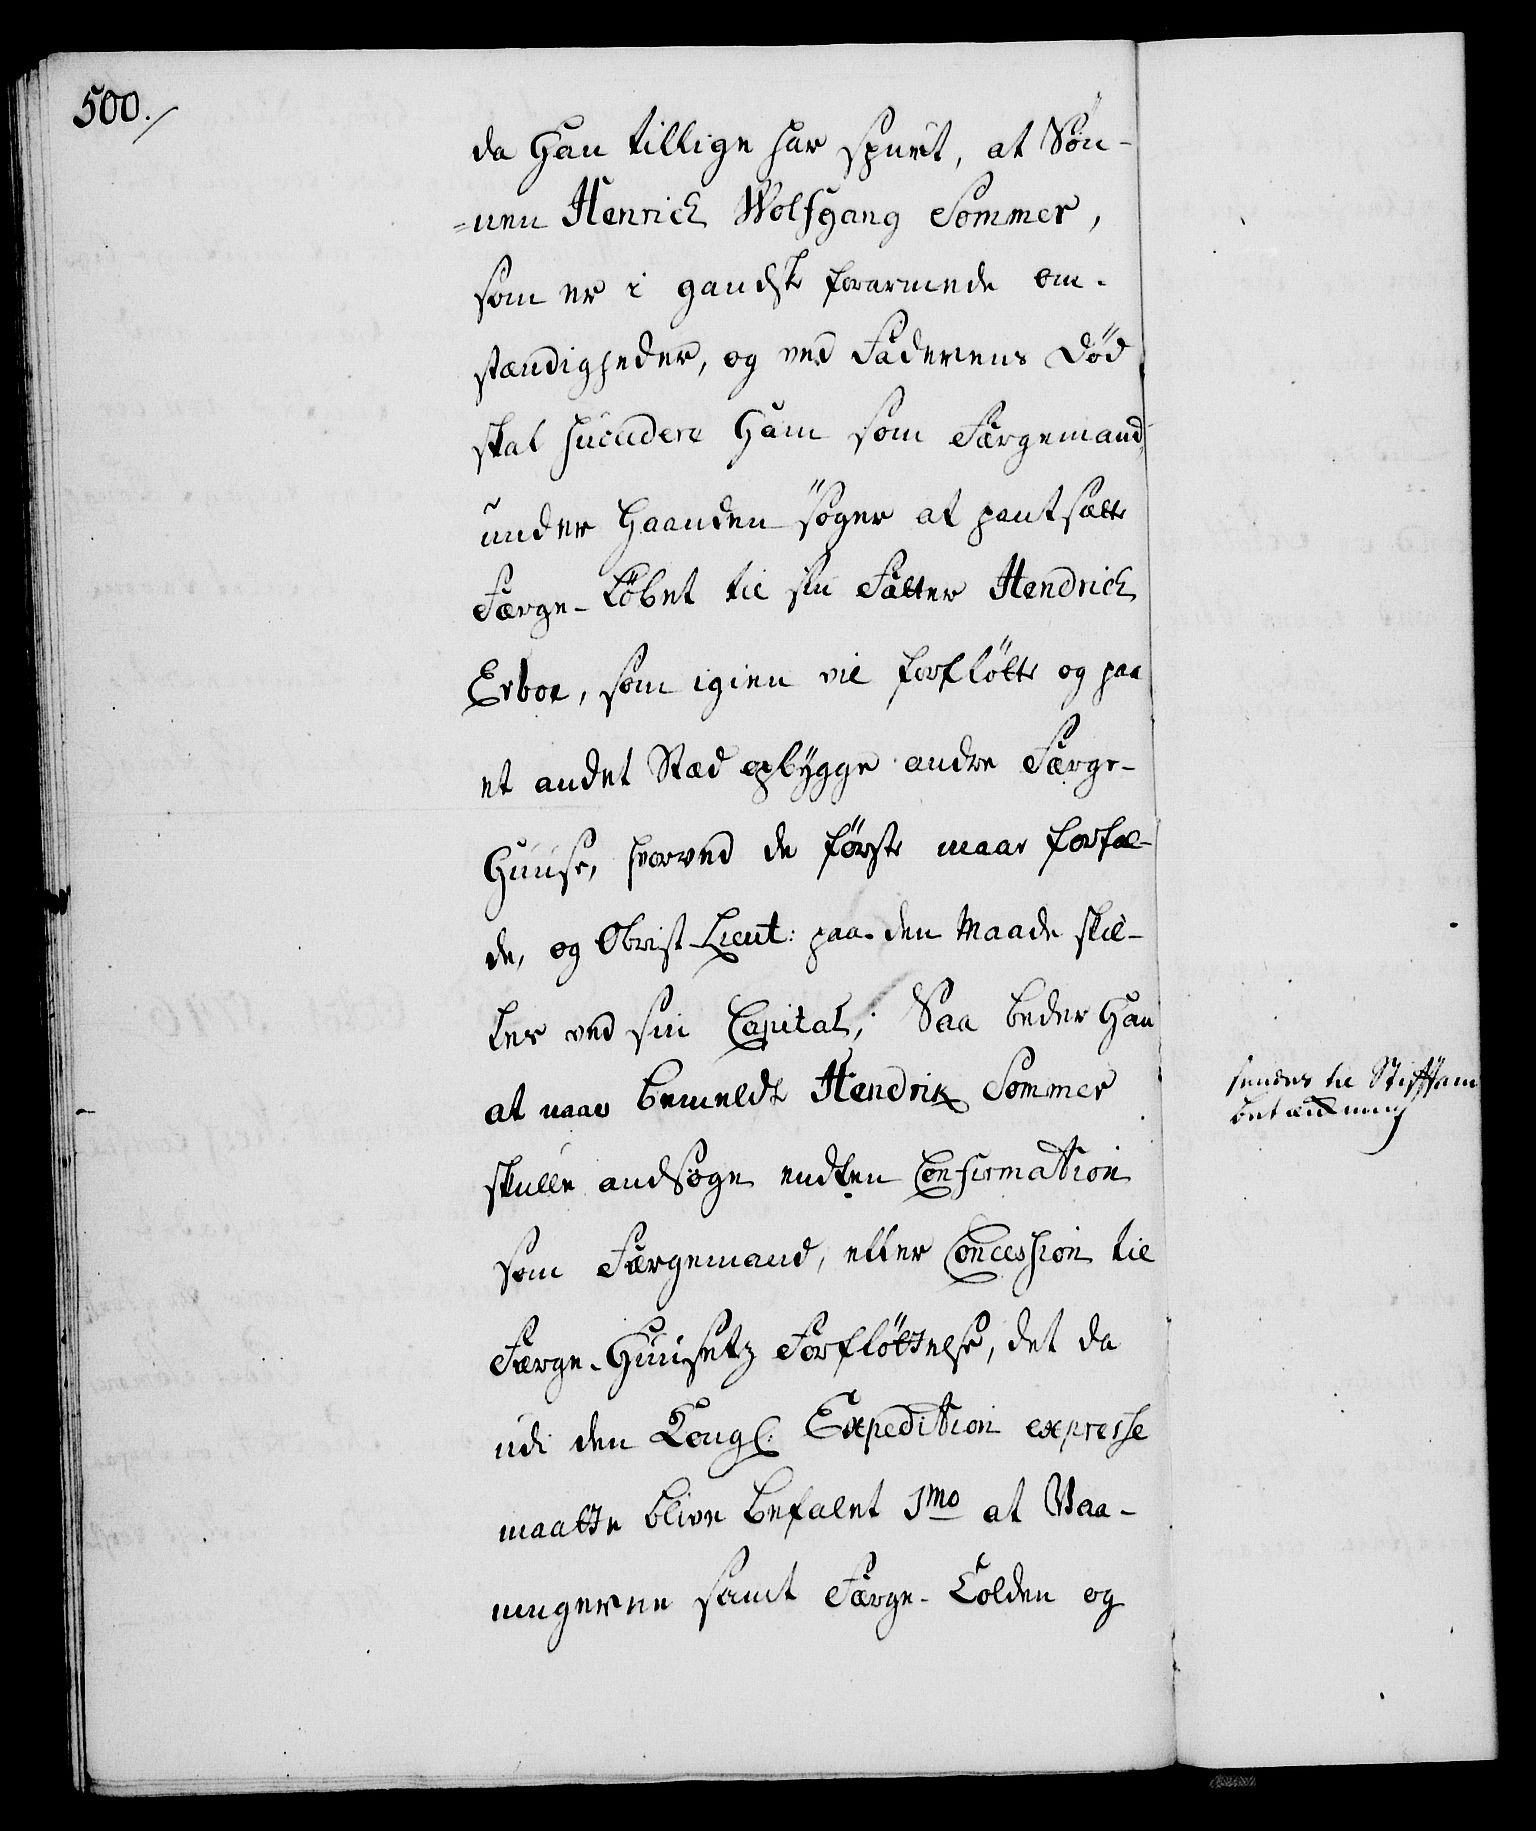 500./
da Han tillige har spurt, at Søn-
=nen Henrich Wolfgang Sommer,
som er i gandske forarmede om-
stændigheder, og ved Faderens Død
skal succedere Ham som Færgemand,
under Haanden søger at pantsætte
Færge-Løbet til sin Fætter Hendrich
Erboe, som igien vil forfløtte og paa
et andet Stæd opbygge andre Færge-
Huuse, hvorved de første maae forfal-
de, og Obrist-Lieut: paa den Maade skil-
les ved sin Capital; Saa beder Han
at naar bemeldte Hendrix Sommer
skulle andsøge endten Confirmation
som Færgemand, eller Concession til
Færge-Huusetz Forfløttelse, det da
udi den Kongl: Expedition expresse
maatte blive befalet 1mo at Vaa-
ningerne samt Færge-Tolden og
sendes til Stiftam
betænkning